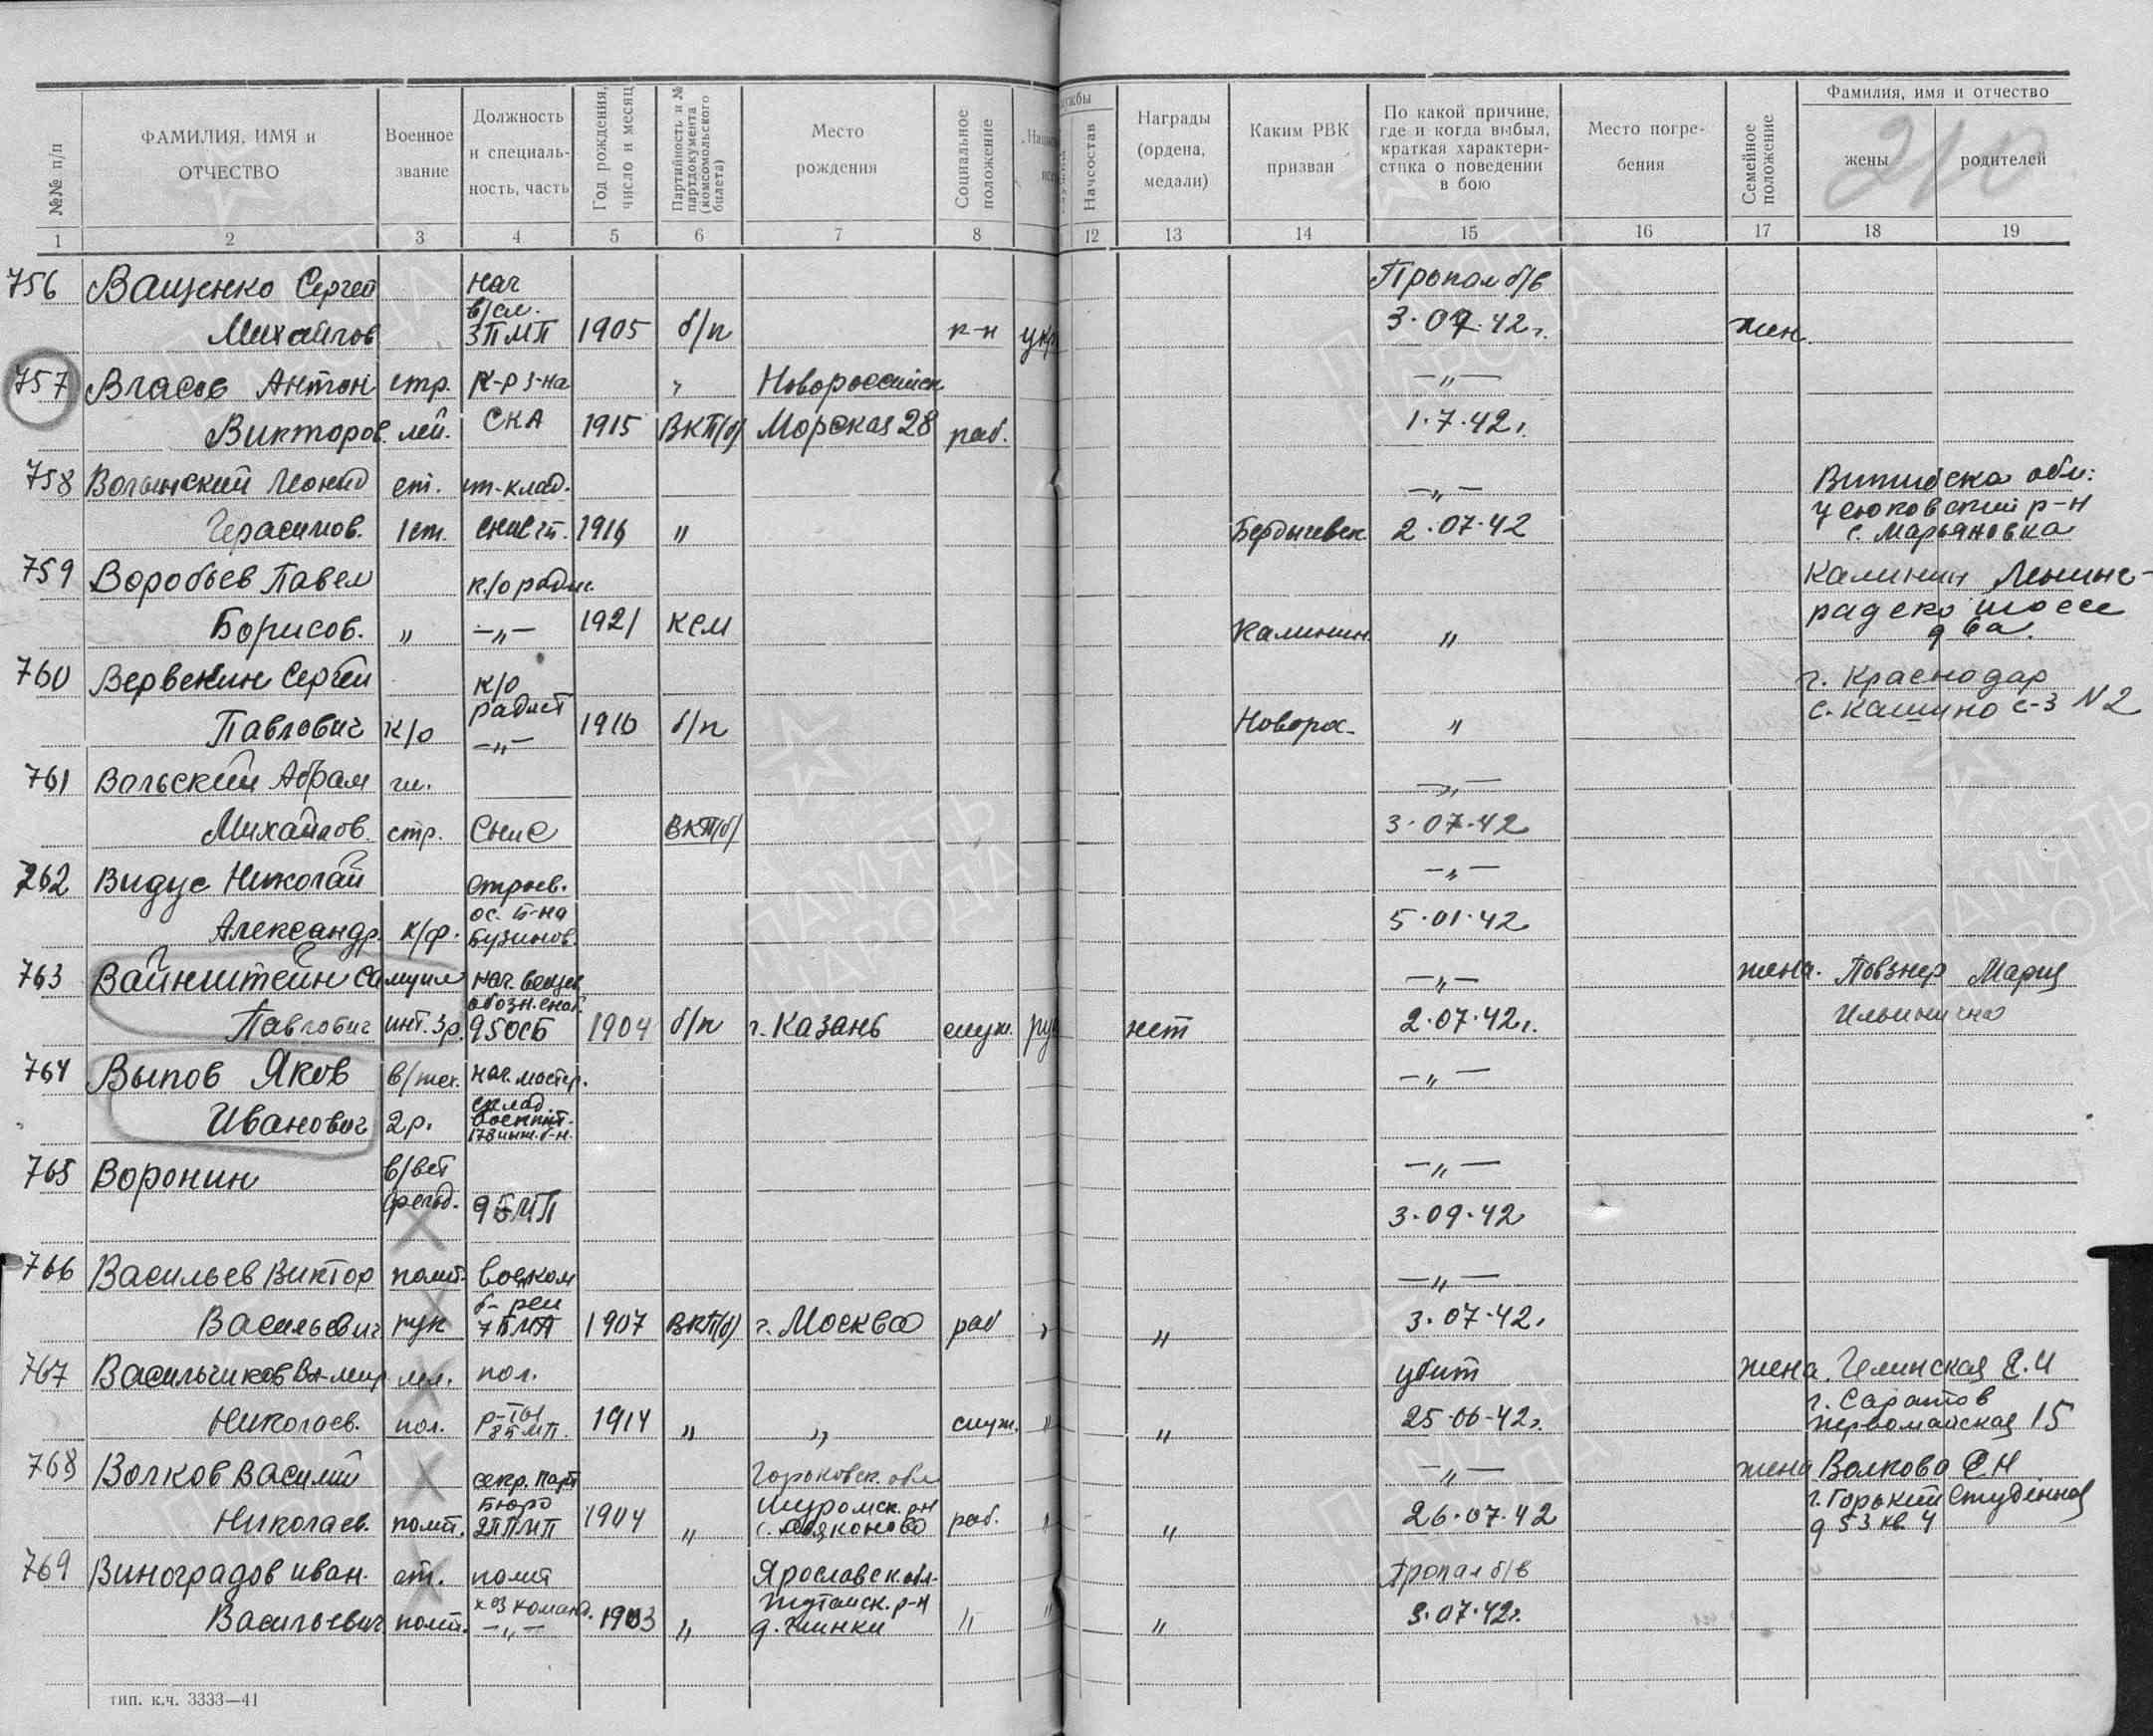 №№ п/п
ФАМИЛИЯ, ИМЯ и
ОТЧЕСТВО
Военное
звание
Должность
и специаль-
ность, часть
Год рождения,
число и месяц
Партийность и №
партдокумента
(комсомольского
билета)
Место
рождения
Социальное
положение
ужбы
Начсостав
Награды
(ордена,
медали)
Каким РВК
призван
По какой причине,
где и когда выбыл,
краткая характери-
стика о поведении
в бою
Место погре-
бения
Семейное
положение
Фамилия, имя и отчество
жены
родителей
210
1 2 3 4 5 6 7 8 12 13 14 15 16 17 18 19
756 Ващенко Сергей нач Пропал б/в
в/сл.
Михайлов 3ПМП 1905 б/п к-н укр 3.07.42г. жен.
757 Власов Антон стр. к-р з-на " Новороссийск —"—
Викторов. лей. СКА 1915 ВКП(б) Морская 28 раб. 1.7.42г.
758 Волынский Леонид ст. шт-клад. —"— Витибска обл:
р-н
Герасимов. 1ст. СНиС 1916 " Бердычевск 2.07.42 с. Марьяновка
759 Воробьев Павел к/о радис. Калинин Ленинг-
радско шоссе
Борисов. " —"— 1921 ксм Калинин " д 6а.
760 Вервекин Сергей к/о г. Краснодар
радист с. Кашино с-з N2
Павлович к/о —"— 1910 б/п Новорос- "
761 Вольский Абрам гл. —"—
Михайлов. стр. СНиС ВКП(б) 3.07.42
762 Видус Николай строев. —"—
ос. б-на
Александр. к/ф. Бузинов. 5.01.42
763 Вайнштейн Самуил нач. вещев. —"— жена. Повзнер Мария
обозн. снаб.
Павлович инт. 3р. 95ОСБ 1904 б/п г. Казань служ. рус нет 2.07.42г. Ильинична
764 Выпов Яков в/тех. нач. мастер. —"—
склад.
Иванович 2р. 178 инж. б-н.
765 Воронин в/вет —"—
фельд. 9БМП 3.09.42
766 Васильев Виктор полит- военком —"—
б-реи
Васильевич рук 7БМП 1907 ВКП(б) г. Москва раб " " 3.07.42г.
767 Васильчиков Вл-мир мл. пол. убит жена. Челинская Е.И
р-ты г. Саратов
Николаев. пол. 8БМП. 1914 " " служ. " " 25.06.42г. Первомайская 15
768 Волков Василий секр. парт Горьковск. обл —"— жена Волкова Е.Н
бюро Муромск. р-н г. Горький Студенная
Николаев. полит. 2ППМП 1904 " с. Дьяконово раб. " " 26.07.42 д 53 кв. 4
769 Виноградов Иван. ст. полит Ярославск. обл. Пропал б/в
хоз команд. Тутаиск. р-н
Васильевич полит. —"— 1903 " д. Глинки " " " 3.07.42г.
тип. к.ч. 3333—41
ПАМЯТЬ
НАРОДА